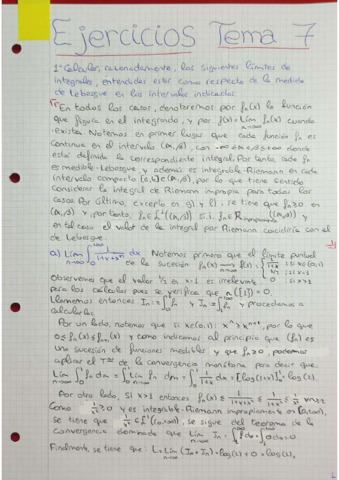 Ejercicios Tema 7
1º Calcular, razonadamente, los siguientes límites de
integrales, entendidas estas como respecto de la medida
de Lebesgue en los intervalos indicados.
En todos los casos, denotaremos por fₙ(x) la función
que figura en el integrando, y por f(x)=lím fₙ(x) cuando
n→∞
exista. Notemos en primer lugar que cada función fₙ es
continua en el intervalo (α,β), con -∞≤α<β≤+∞ donde
está definida la correspondiente integral. Por tanto, cada fₙ
es medible-Lebesgue y además es integrable-Riemann en cada
intervalo compacto ⊂ (α,β), por lo que tiene sentido
considerar la integral de Riemann impropia para todos los
casos. Por último, excepto en g) y l), se tiene que fₙ≥0 en
(α,β) y, por tanto, fₙ∈L¹((α,β)) s.i. fₙ∈R ((α,β)) y
en tal caso el valor de la integral por Riemann coincidirá con el
de Lebesgue.
a) Lím ∫ dx Notemos primero que el límite puntual
n→∞
de la sucesión fₙ(x) → f(x)=
Observemos que el valor 1/2 en x=1 es irrelevante
para los cálculos pues se verifica que m({1})=0.
Llamemos entonces Iₙ= ∫fₙ y Jₙ= ∫fₙ y procedamos a
calcularlas.
Por un lado, notamos que si x∈(0,1): xⁿ≥xⁿ⁺¹, por lo que
0≤fₙ(x)≤fₙ₊₁(x) y como indicamos al principio que (fₙ) es
una sucesión de funciones medibles y que fₙ≥0, podemos
aplicar el T^ma de la convergencia monótona para decir que
Lím ∫fₙ dm = ∫Lím fₙ dm = ∫ 1/(1+x) dx = [log(1+x)]₀¹ = log(2).
Por otro lado, si x>1 entonces fₙ(x) ≤ 1/(1+xⁿ) ≤ 1/(1+x²) ≤ 1/x² ∀n≥2.
Como 1/x²≥0 y es integrable-Riemann impropiamente en [1,+∞),
se tiene que 1/x²∈L¹((1,+∞)), se sigue del teorema de la
convergencia dominada que Lím Jₙ = ∫ f dm = ∫ 0 dm = 0
Finalmente, se tiene que L= Lím (Iₙ+Jₙ) = log(2)+0 = log(2).
1